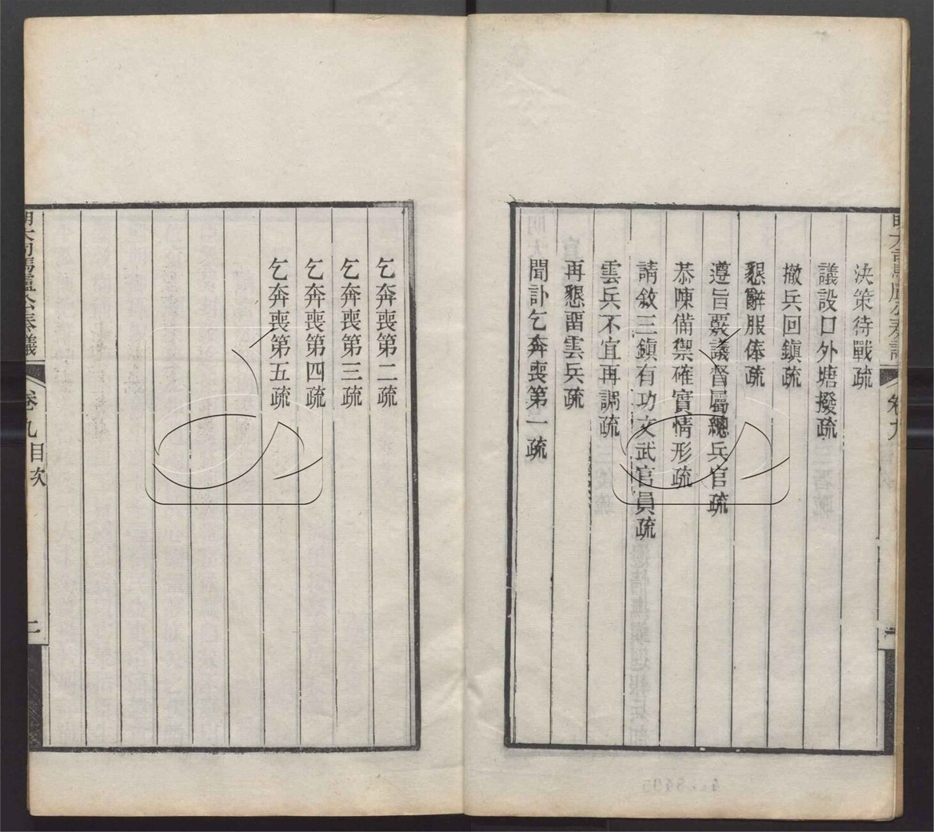 決策待戰疏
議設口外塘撥疏
撤兵回鎮疏
懇辭服俸疏
遵旨覆議督屬總兵官疏
恭陳備禦確實情形疏
請敘三鎮有功文武官員疏
雲兵不宜再調疏
再懇留雲兵疏
聞訃乞奔喪第一疏
乞奔喪第二疏
乞奔喪第三疏
乞奔喪第四疏
乞奔喪第五疏
明大司馬盧公奏議
卷九目次
二